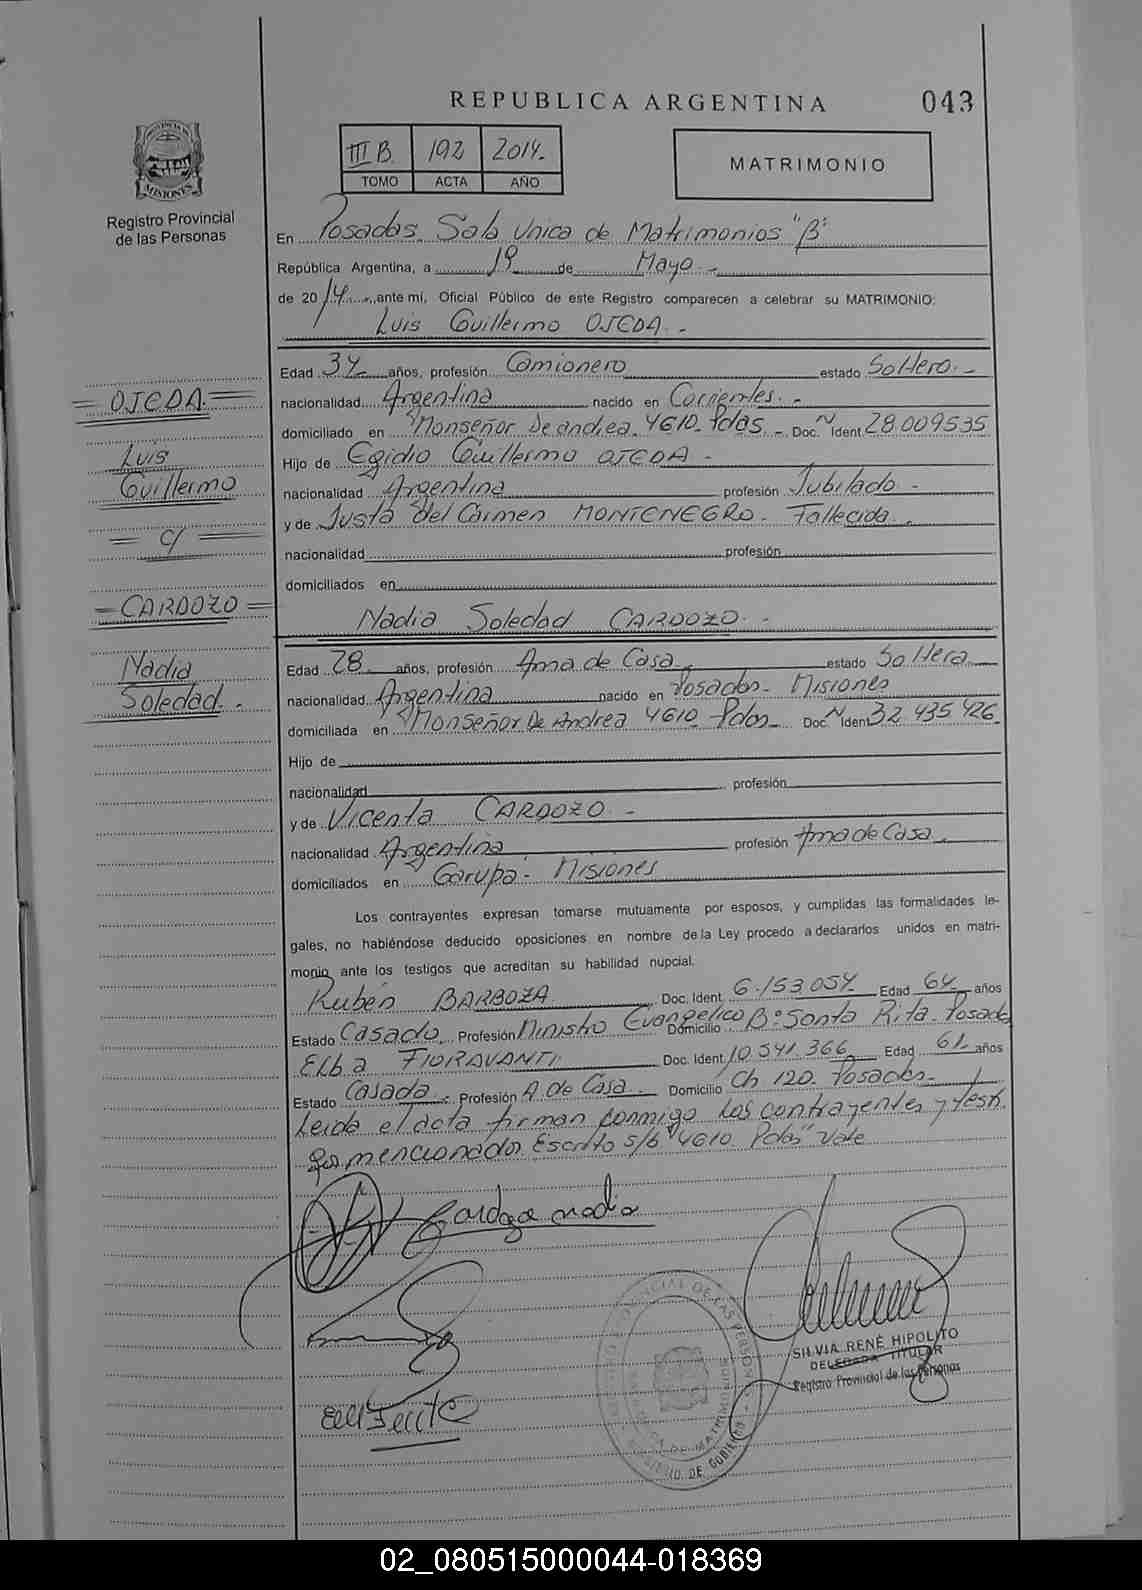 REPUBLICA ARGENTINA 043
PROVINCIA DE MISIONES
Registro Provincial
de las Personas
III B. 192 2014.
TOMO ACTA AÑO
MATRIMONIO
En Posadas. Sala Unica de Matrimonios "B"
República Argentina, a 19 de Mayo.-
de 2014., ante mí, Oficial Público de este Registro comparecen a celebrar su MATRIMONIO:
Luis Guillermo OJEDA.-
Edad 34 años, profesión Camionero estado Soltero.-
nacionalidad Argentina nacido en Corrientes.-
domiciliado en Monseñor De andrea. 4610. Pdas.- Doc. N Ident. 28.009535
Hijo de Egidio Guillermo OJEDA -
nacionalidad Argentina profesión Jubilado -
y de Justa del Carmen MONTENEGRO. Fallecida.
nacionalidad profesión
domiciliados en
Nadia Soledad CARDOZO.-
Edad 28 años, profesión Ama de Casa. estado Soltera
nacionalidad Argentina nacido en Posadas- Misiones
domiciliada en Monseñor De Andrea 4610 Pdas- Doc N Iden 32 435 426
Hijo de
nacionalidad profesión
y de Vicenta CARDOZO. -
nacionalidad Argentina profesión Ama de Casa.
domiciliados en Garupá- Misiones
Los contrayentes expresan tomarse mutuamente por esposos, y cumplidas las formalidades le-
gales, no habiéndose deducido oposiciones en nombre de la Ley procedo a declararlos unidos en matri-
monio ante los testigos que acreditan su habilidad nupcial.
Rubén BARBOZA Doc. Ident. 6.153.054 Edad 64 años
Estado Casado. Profesión Ministro Evangélico Domicilio Bº Santa Rita. Posadas
Elba FIORAVANTI Doc. Ident. 10.541.366 Edad 61 años
Estado Casada. Profesión A. de Casa. Domicilio Ch 120. Posadas-
Leída el acta firman conmigo los contrayentes y testi
gos mencionados Escrito s/b "4610 Pdas" Vale
Cardozo nadia
SILVIA RENÉ HIPOLITO
DELEGADA TITULAR
Registro Provincial de las Personas
OJEDA
Luis
Guillermo
c/
CARDOZO
Nadia
Soledad.
02_080515000044-018369